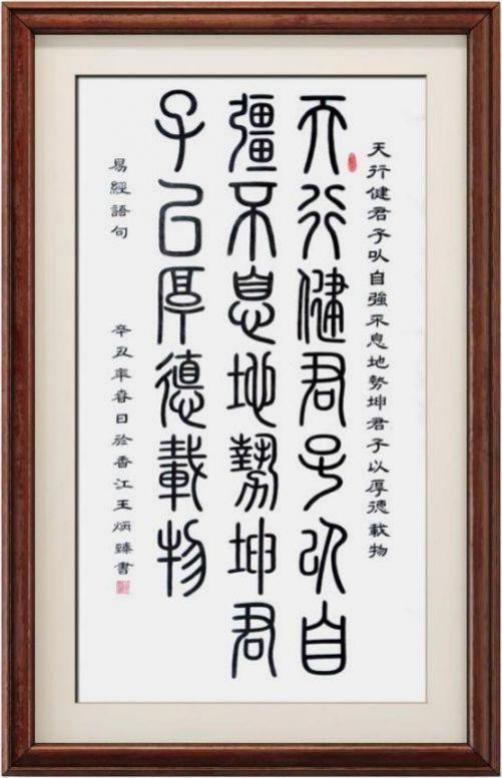 天行健君子㕥自強不息地勢坤君子以厚德載物
天行健君子㕥自
彊不息地勢坤君
子㠯厚德載物
易經語句
辛丑年春日於香江王炳臻書